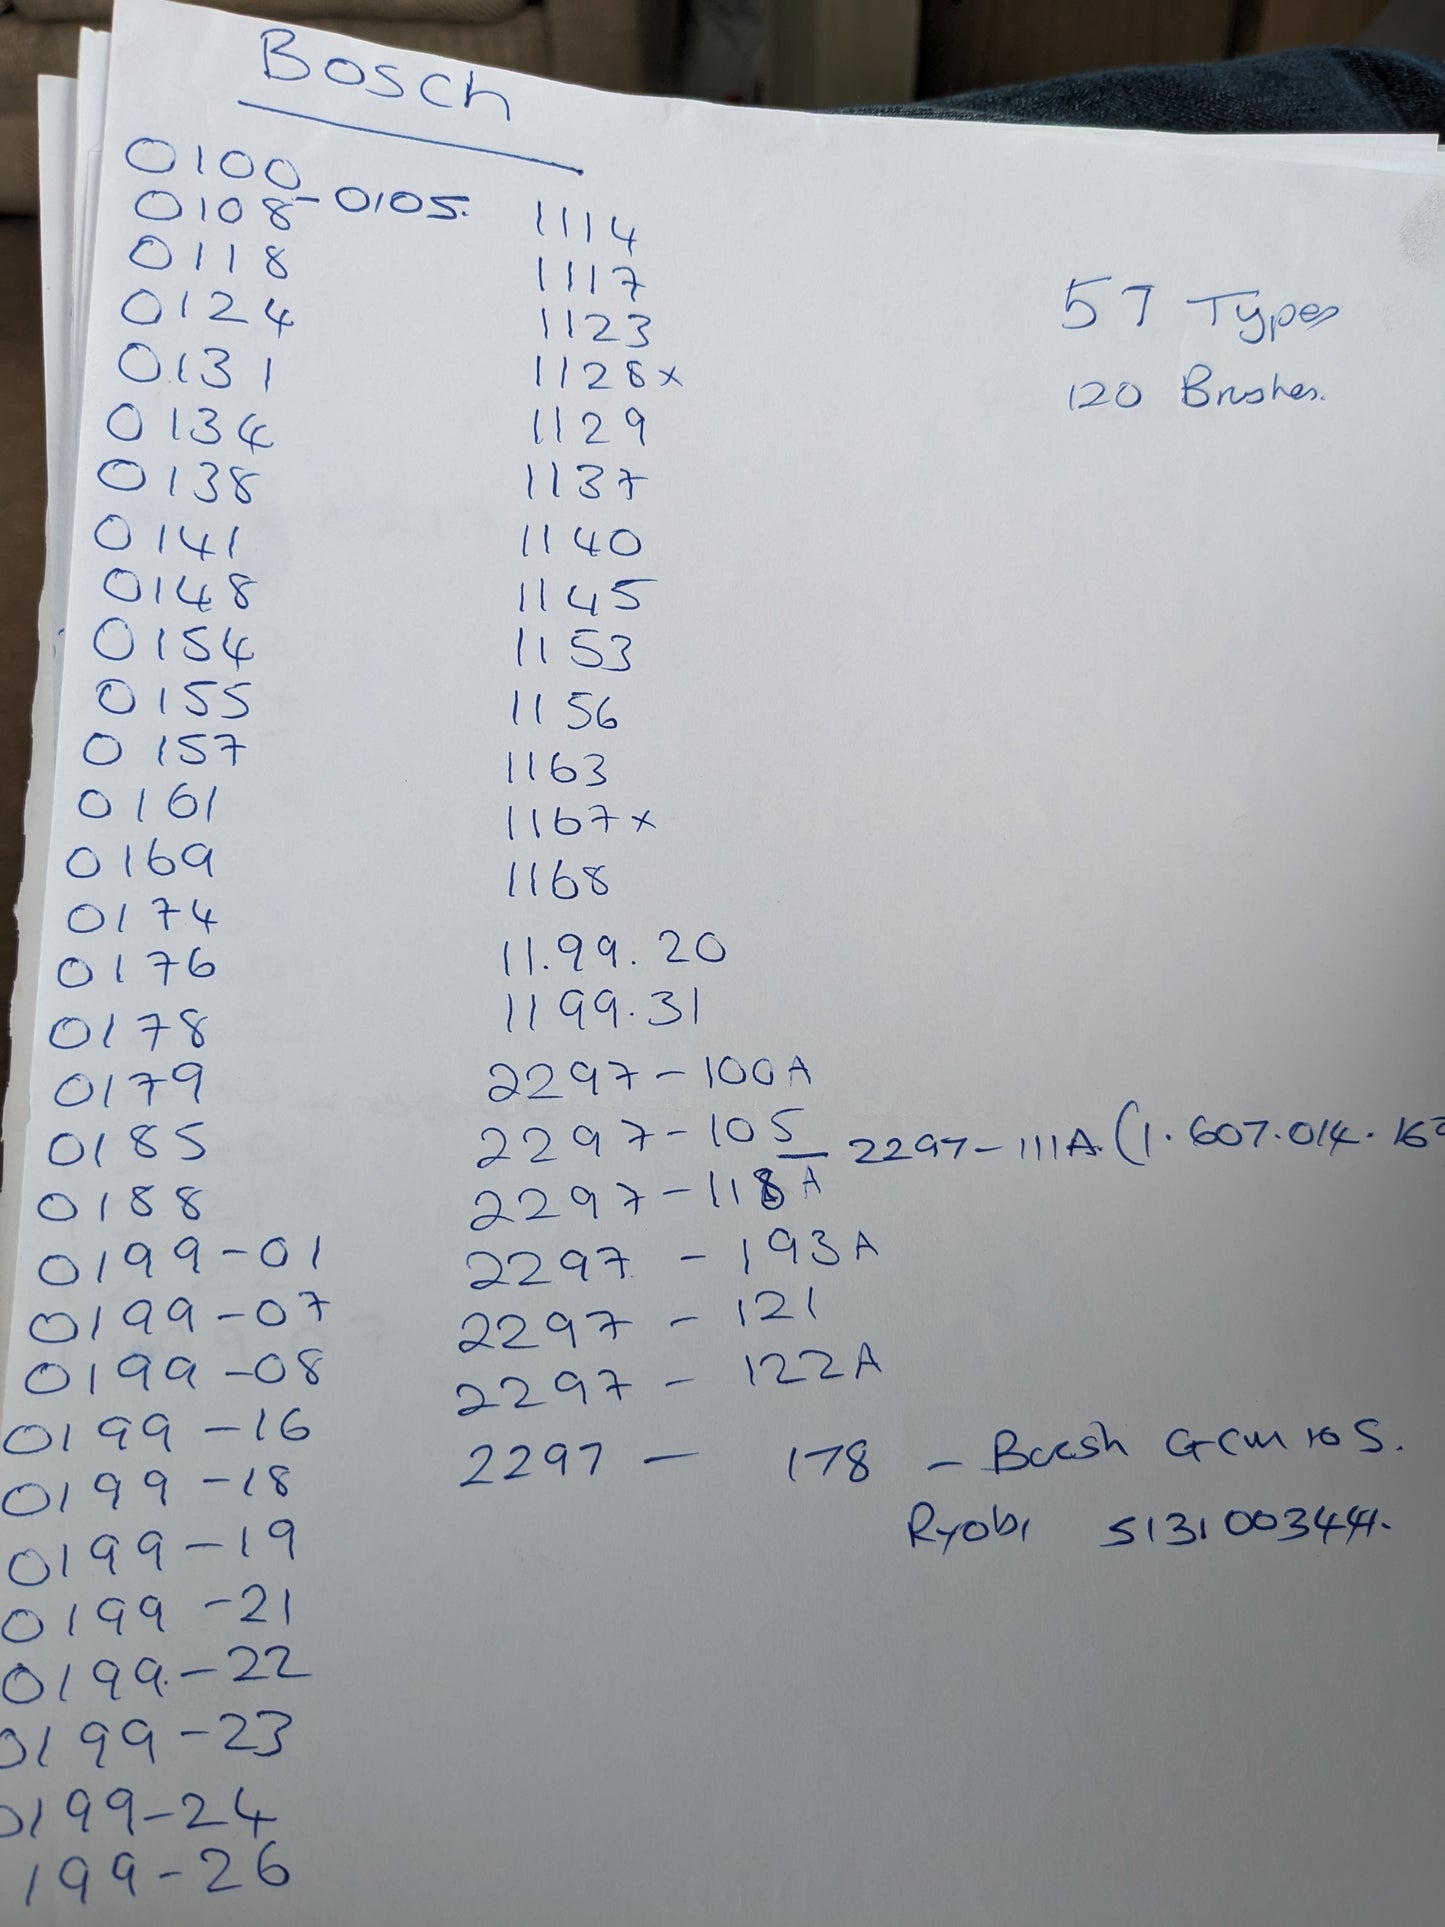 Bosch
0100
0108 - 0105.
0118
0124
0131
0134
0138
0141
0148
0154
0155
0157
0161
0169
0174
0176
0178
0179
0185
0188
0199-01
0199-07
0199-08
0199-16
0199-18
0199-19
0199-21
0199-22
0199-23
0199-24
199-26
1114
1117
1123
1128x
1129
1137
1140
1145
1153
1156
1163
1167x
1168
11.99.20
1199.31
2297-100A
2297-105 2297-111A (1.607.014.
2297-118A
2297-193A
2297-121
2297-122A
2297 - 178 - Bosch GCM 10 S.
Ryobi 5131003441.
57 Types
120 Brushes.